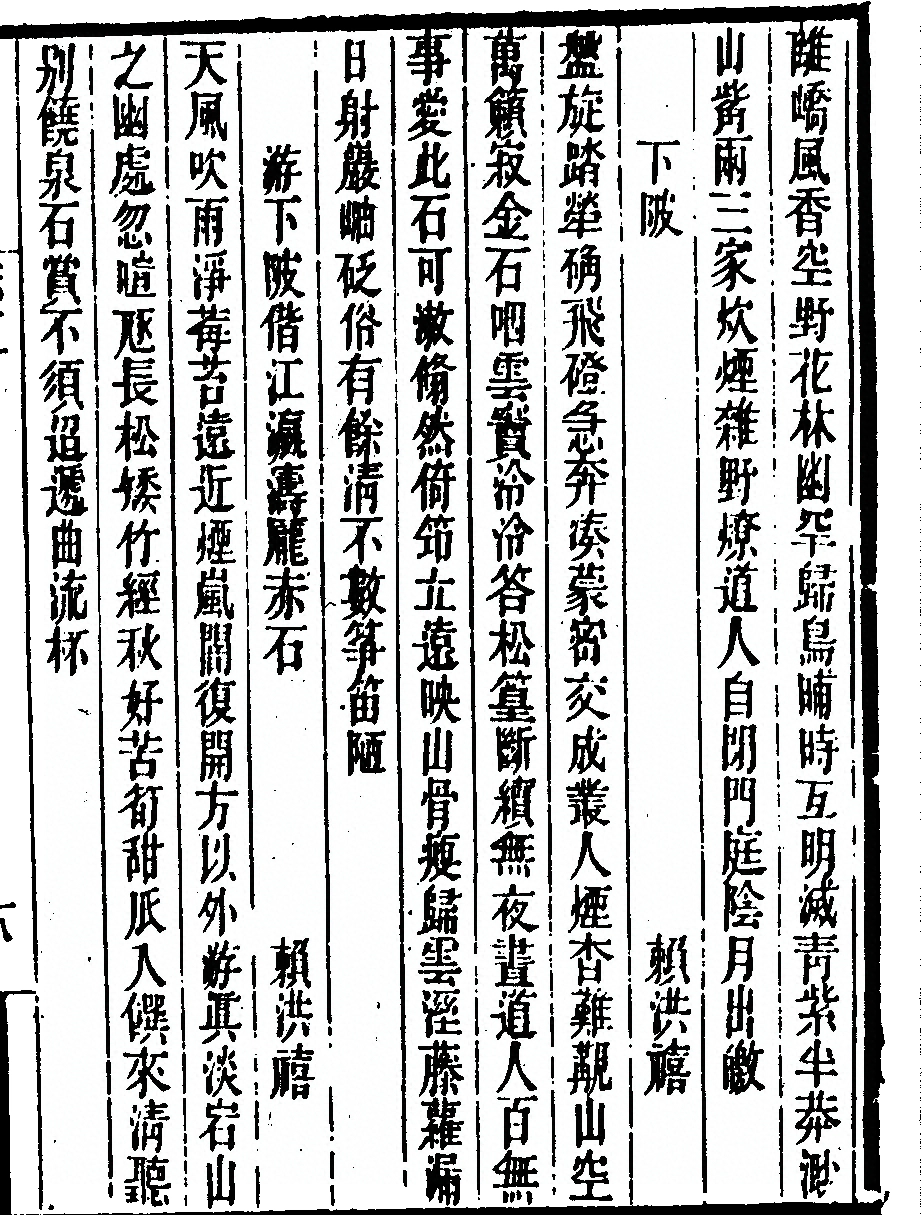 雖嶠風香空野花林幽罕歸鳥晡時互明滅青紫半莽渺
山觜兩三家炊煙雜野燎道人自閉門庭陰月出皦
下陂 賴洪禧
盤旋踏犖确飛磴急奔湊蒙密交成叢人煙杳難覯山空
萬籟寂金石咽雲竇泠泠答松篁斷續無夜晝道人百無
事愛此石可漱翛然倚筇立遠映山骨瘦歸雲溼藤蘿漏
日射巖岫砭俗有餘清不數箏笛陋
游下陂偕江瀛濤龐赤石 賴洪禧
天風吹雨淨莓苔遠近煙嵐闔復開方以外游眞淡宕山
之幽處忽喧豗長松矮竹經秋好苦筍甜瓜入饌來清聽
別饒泉石賞不須迢遞曲流杯